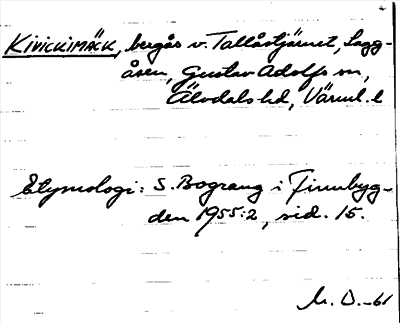 KIVICKIMÄCK, bergås v. Tallåstjärnet, Lagg-
åsen, Gustav Adolfs sn,
Älvdals hd, Värml. l
Etymologi: S. Bograng i Finnbyg-
den 1955:2, sid. 15.
M. O.-61